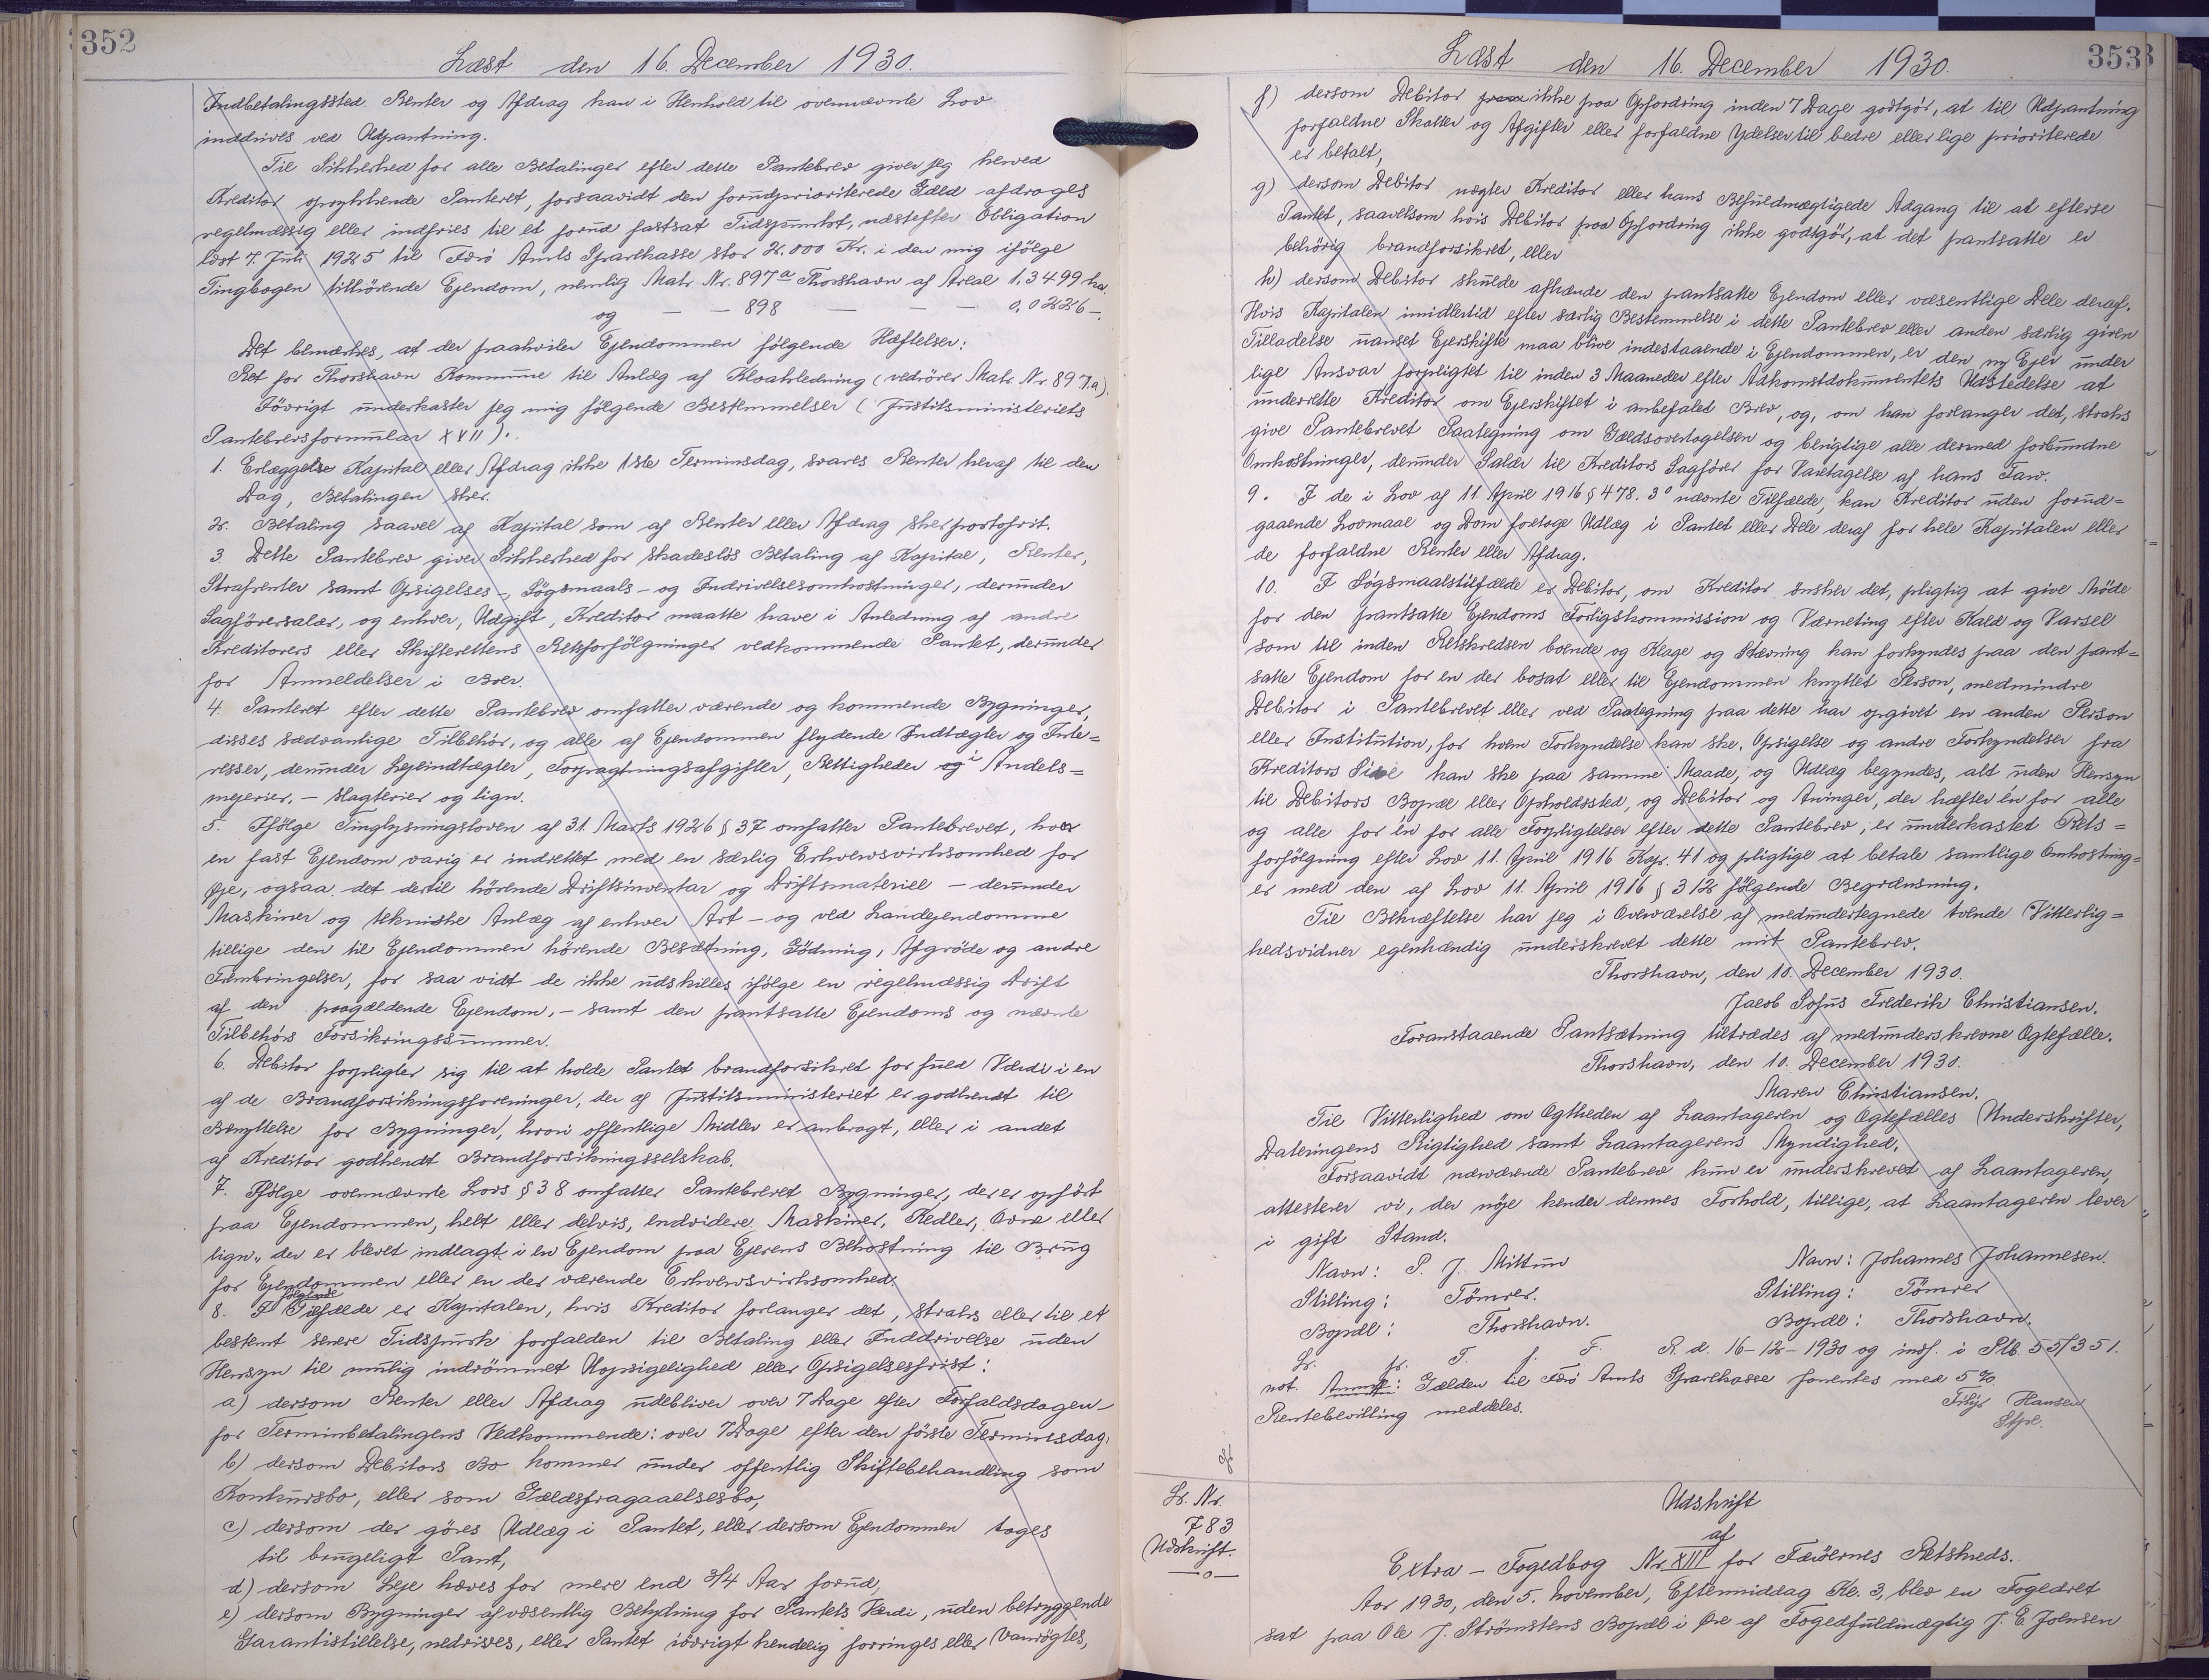 352
Læst den 16. December 1930.
Indbetalingssted. Renter og Afdrag kan i Henhold til ovennævnte Lov
inddrives ved Udpantning.
Til Sikkerhed for alle Betalinger efter dette Pantebrev giver jeg herved
Kreditor oprykkende Panteret, forsaavidt den forudprioriterede Gæld afdrages
regelmæssig eller indfries til et forud fastsat Tidspunkt, næstefter Obligation
læst 7. Juli 1925 til Færø Amts Sparekasse stor 2.000 Kr. i den mig ifølge
Tingbogen tilhørende Ejendom, nemlig Matr. Nr. 897a Thorshavn af Areal 1,3499 ha.
og — — 898 — — — 0,0226 —.
Det bemærkes, at der paahviler Ejendommen følgende Hæftelser:
Ret for Thorshavn Kommune til Anlæg af Kloakledning (vedrører Matr. Nr. 897.a).
Iøvrigt underkaster jeg mig følgende Bestemmelser (Justitsministeriets
Pantebrevsformular XVII).
1. Erlægges Kapital eller Afdrag ikke 1ste Terminsdag, svares Renter heraf til den
Dag, Betalingen sker.
2. Betaling saavel af Kapital som af Renter eller Afdrag sker portofrit.
3. Dette Pantebrev giver Sikkerhed for skadesløs Betaling af Kapital, Renter,
Strafrenter samt Opsigelses-, Søgsmaals- og Inddrivelsesomkostninger, derunder
Sagførersalær, og enhver, Udgift, Kreditor maatte have i Anledning af andre
Kreditorers eller Skifterettens Retsforfølgninger vedkommende Pantet, derunder
for Anmeldelser i Boer.
4. Panteret efter dette Pantebrev omfatter værende og kommende Bygninger,
disses sædvanlige Tilbehør, og alle af Ejendommen flydende Indtægter og Inte=
resser, derunder Lejeindtægter, Forpagtningsafgifter, Rettigheder og i Andels=
mejerier, - Slagterier og lign.
5. Ifølge Tinglysningsloven af 31. Marts 1926 § 37 omfatter Pantebrevet, hvor
en fast Ejendom varig er indrettet med en særlig Erhvervsvirksomhed for
Øje, ogsaa det dertil hørende Driftsinventar og Driftsmateriel — derunder
Maskiner og tekniske Anlæg af enhver Art — og ved Landejendomme
tillige den til Ejendommen hørende Besætning, Gødning, Afgrøde og andre
Frembringelser, for saa vidt de ikke udskilles ifølge en regelmæssig Drift
af den paagældende Ejendom, - samt den pantsatte Ejendoms og nævnte
Tilbehørs Forsikringssummer.
6. Debitor forpligter sig til at holde Pantet brandforsikret for fuld Værdi i en
af de Brandforsikringsforeninger, der af Justitsministeriet er godkendt til
Benyttelse for Bygninger, hvori offentlige Midler er anbragt, eller i andet
af Kreditor godkendt Brandforsikringsselskab.
7. Ifølge ovennævnte Lovs § 38 omfatter Pantebrevet Bygninger, der er opført
paa Ejendommen, helt eller delvis, endvidere Maskiner, Kedler, Ovne eller
lign., der er blevet indlagt i en Ejendom paa Ejerens Bekostning til Brug
for Ejendommen eller en der værende Erhvervsvirksomhed.
8. I følgende Tilfælde er Kapitalen, hvis Kreditor forlanger det, straks eller til et
bestemt senere Tidspunkt forfalden til Betaling eller Inddrivelse uden
Hensyn til mulig indrømmet Uopsigelighed eller Opsigelsesfrist:
a) dersom Renter eller Afdrag udebliver over 7 Dage efter Forfaldsdagen -
for Terminbetalingens Vedkommende: over 7 Dage efter den første Terminsdag,
b) dersom Debitors Bo kommer under offentlig Skiftebehandling som
Konkursbo, eller som Gældsfragaaelsesbo,
c) dersom der gøres Udlæg i Pantet, eller dersom Ejendommen tages
til brugeligt Pant,
d) dersom Leje hæves for mere end 3/4 Aar forud,
e) dersom Bygninger af væsentlig Betydning for Pantets Værdi, uden betryggende
Garantistillelse, nedrives, eller Pantet iøvrigt kendelig forringes eller vanrøgtes,
353
Læst den 16. December 1930.
f) dersom Debitor ikke paa Opfordring inden 7 Dage godtgør, at til Udpantning
forfaldne Skatter og Afgifter eller forfaldne Ydelser til bedre eller lige prioriterede
er betalt,
g) dersom Debitor nægter Kreditor eller hans Befuldmægtigede Adgang til at efterse
Pantet, saavelsom hvis Debitor paa Opfordring ikke godtgør, at det pantsatte er
behørig brandforsikret, eller
h) dersom Debitor skulde afhænde den pantsatte Ejendom eller væsentlige Dele deraf.
Hvis Kapitalen imidlertid efter særlig Bestemmelse i dette Pantebrev eller anden særlig given
Tilladelse uanset Ejerskifte maa blive indestaaende i Ejendommen, er den ny Ejer under
lige Ansvar forpligtet til inden 3 Maaneder efter Adkomstdokumentets Udstedelse at
underrette Kreditor om Ejerskiftet i anbefalet Brev, og, om han forlanger det, straks
give Pantebrevet Paategning om Gældsovertagelsen og berigtige alle dermed forbundne
Omkostninger, derunder Salær til Kreditors Sagfører for Varetagelse af hans Tarv.
9. I de i Lov af 11. April 1916 § 478. 3° nævnte Tilfælde, kan Kreditor uden forud=
gaaende Lovmaal og Dom foretage Udlæg i Pantet eller Dele deraf for hele Kapitalen eller
de forfaldne Renter eller Afdrag.
10. I Søgsmaalstilfælde er Debitor, om Kreditor ønsker det, pligtig at give Møde
for den pantsatte Ejendoms Forligskommission og Værneting efter Kald og Varsel
som til inden Retskredsen boende og Klage og Stævning kan forkyndes paa den pant=
satte Ejendom for en der bosat eller til Ejendommen knyttet Person, medmindre
Debitor i Pantebrevet eller ved Paategning paa dette har opgivet en anden Person
eller Institution, for hvem Forkyndelse kan ske. Opsigelse og andre Forkyndelser fra
Kreditors Side kan ske paa samme Maade, og Udlæg begyndes, alt uden Hensyn
til Debitors Bopæl eller Opholdssted, og Debitor og Arvinger, der hæfter én for alle
og alle for én for alle Forpligtelser efter dette Pantebrev, er underkastet Rets=
forfølgning efter Lov 11. April 1916 Kap. 41 og pligtige at betale samtlige Omkostning=
er med den af Lov 11. April 1916 § 312 følgende Begrænsning.
Til Bekræftelse har jeg i Overværelse af medundertegnede tvende Vitterlig=
hedsvidner egenhændig underskrevet dette mit Pantebrev.
Thorshavn, den 10. December 1930.
Jacob Sofus Frederik Christiansen.
Foranstaaende Pantsætning tiltrædes af medunderskrevne Ægtefælle.
Thorshavn, den 10. December 1930.
Maren Christiansen.
Til Vitterlighed om Ægtheden af Laantageren og Ægtefælles Underskrifter,
Dateringens Rigtighed samt Laantagerens Myndighed.
Forsaavidt nærværende Pantebrev kun er underskrevet af Laantageren,
attesterer vi, der nøje kender dennes Forhold, tillige, at Laantageren lever
i gift Stand.
Navn: P. J. Mittun Navn: Johannes Johannesen.
Stilling: Tømrer. Stilling: Tømrer
Bopæl: Thorshavn. Bopæl: Thorshavn.
Lr. fr. T. f. F. R. d. 16-12-1930 og indf. i Ptb. 55/351.
not. Anm: Gælden til Færø Amts Sparekasse forrentes med 5%.
Rentebevilling meddeles. Hansen
Stpl.
L. Nr.
783
Udskrift.
—o—
Udskrift
af
Extra - Fogedbog Nr. XIII for Færøernes Retskreds.
Aar 1930, den 5. November, Eftermiddag Kl. 3, blev en Fogedret
sat paa Ole J. Strømstens Bopæl i Øre af Fogedfuldmægtig J. E. Joensen